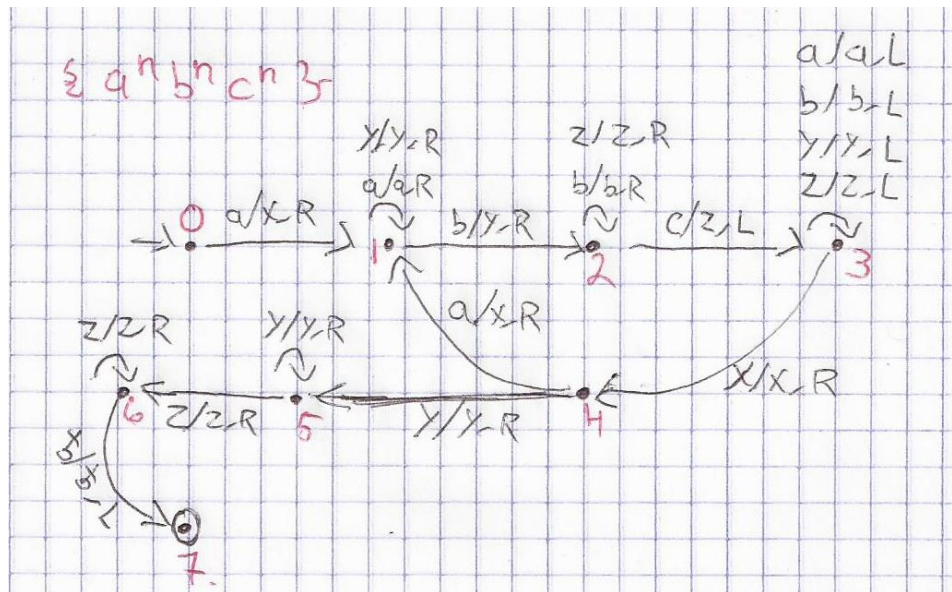 { aⁿ bⁿ cⁿ }
a/a,L
b/b,L
y/y,L
z/z,L
y/y,R
a/a,R
z/z,R
b/b,R
0
a/x,R
1
b/y,R
2
c/z,L
3
a/x,R
x/x,R
z/z,R
y/y,R
6
z/z,R
5
y/y,R
4
7